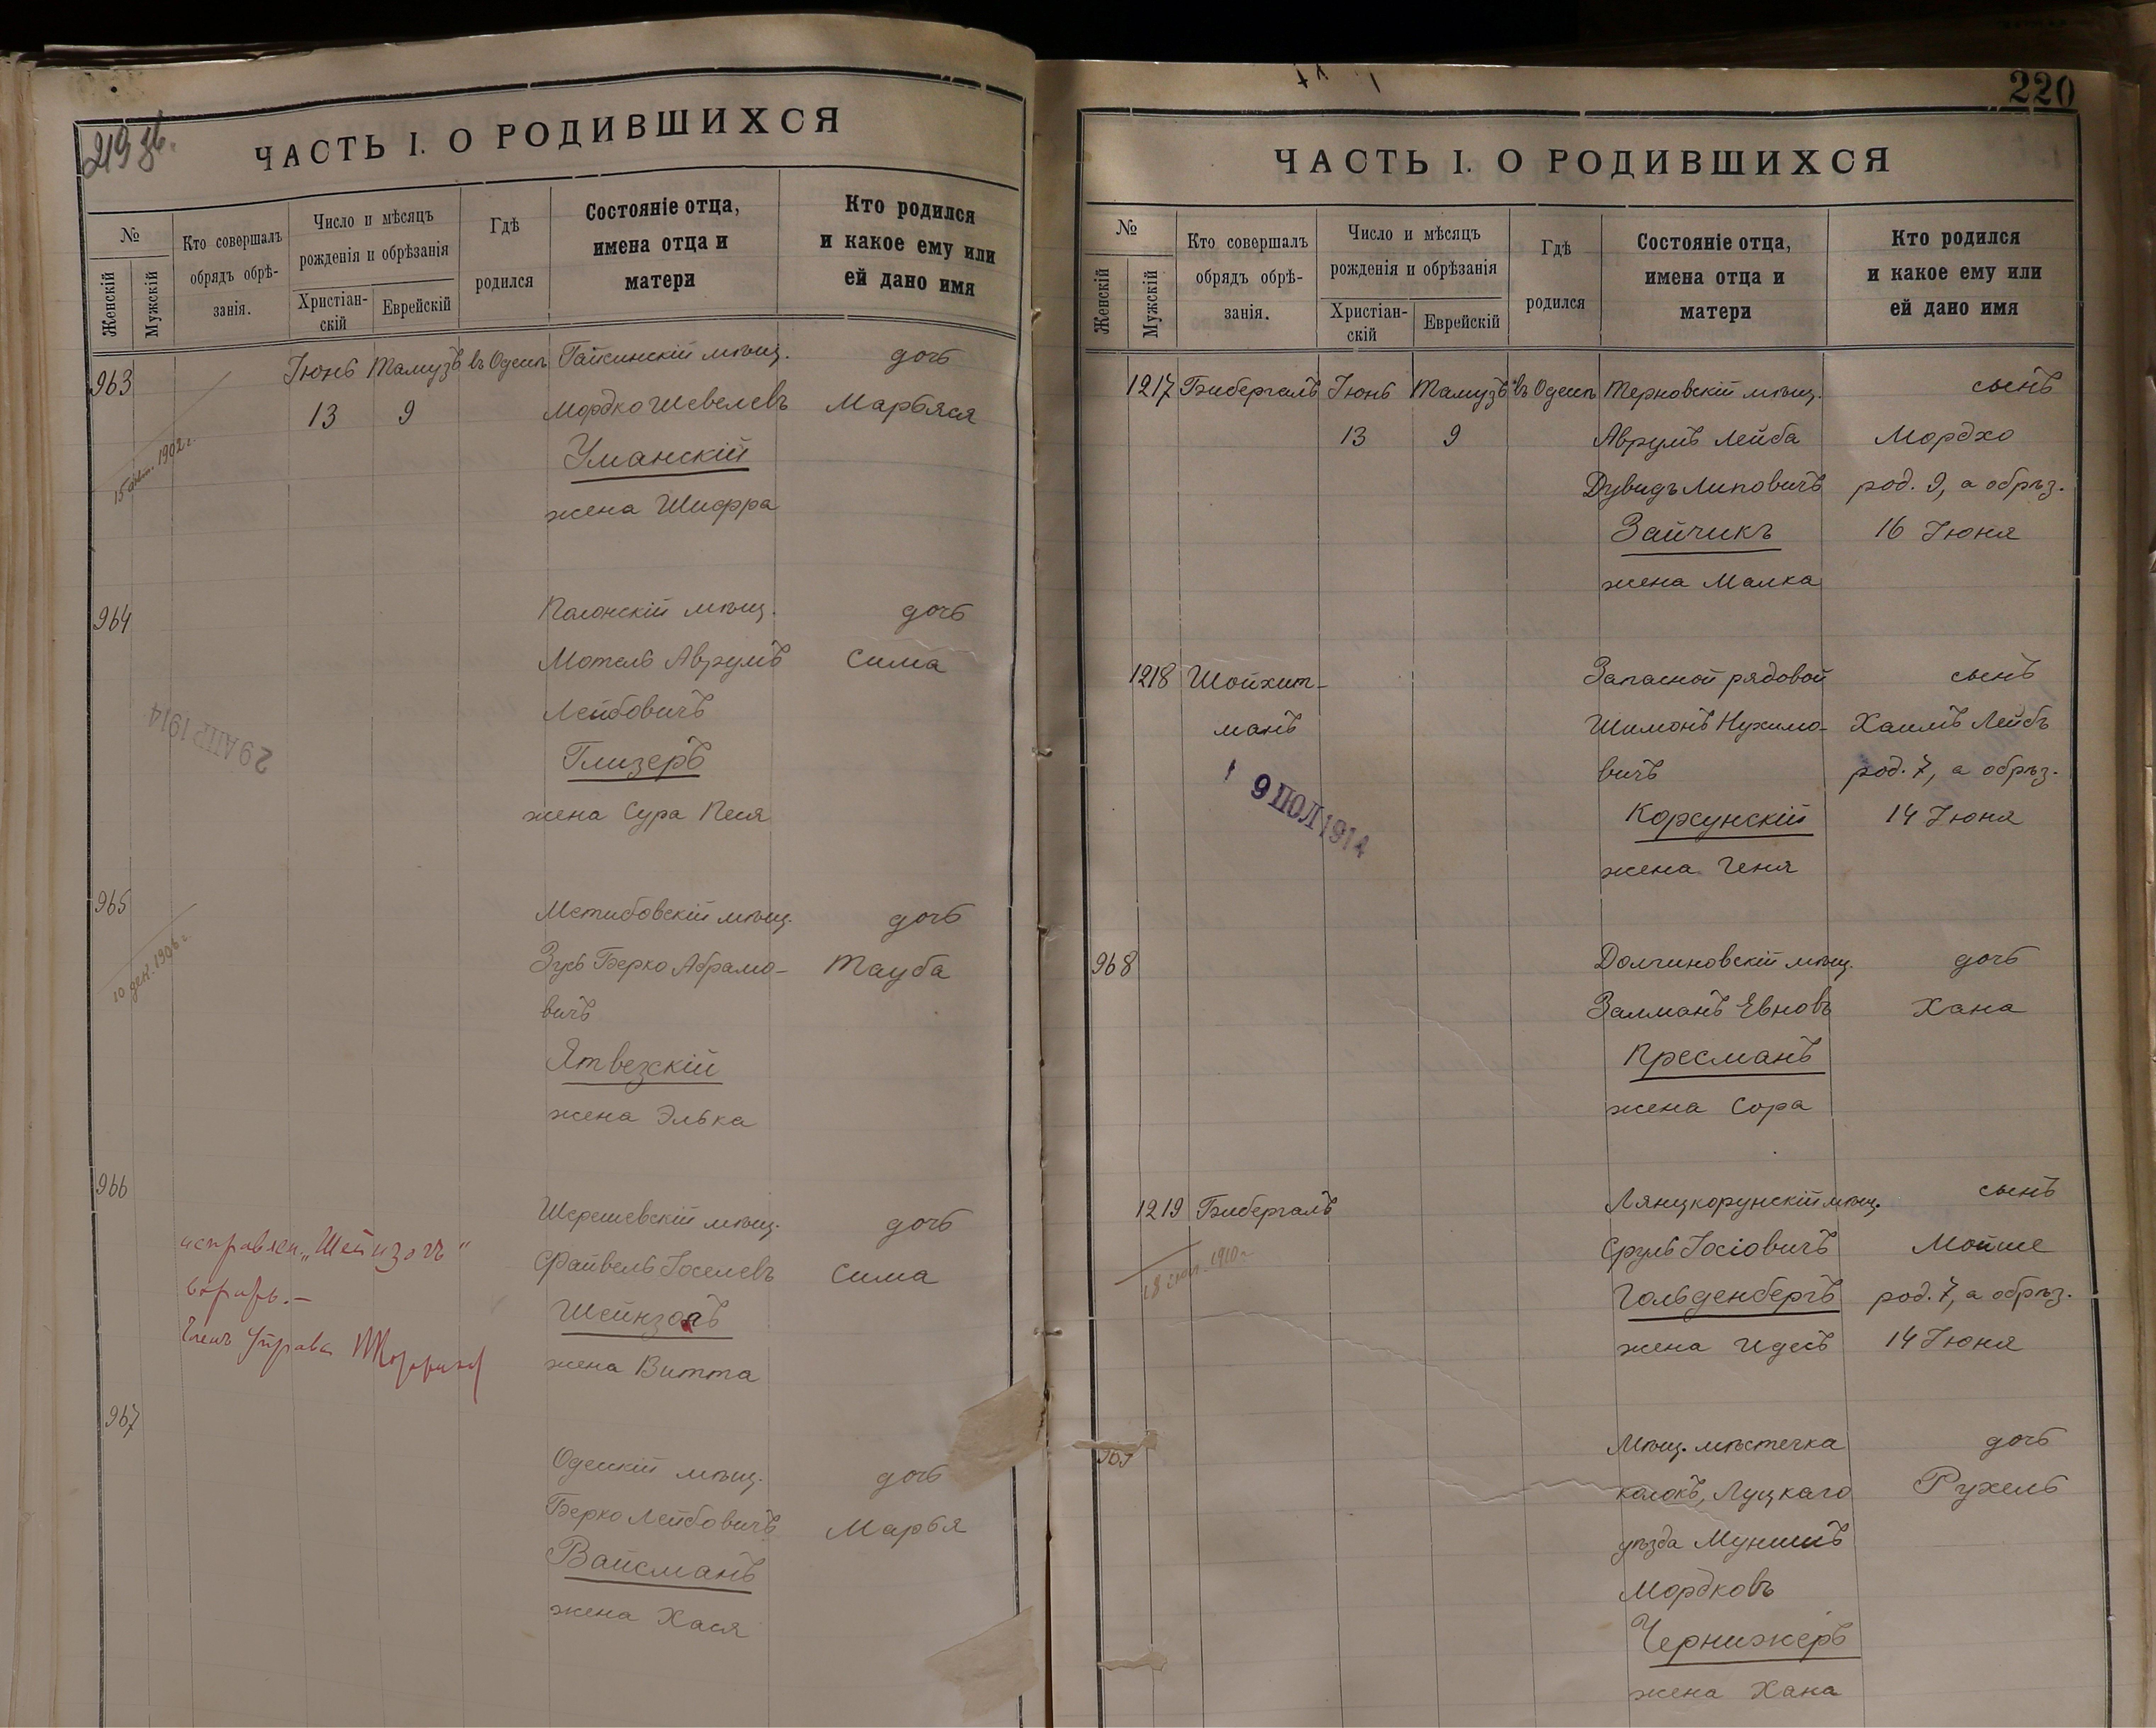 219 об.
ЧАСТЬ I. О РОДИВШИХСЯ
№
Женскій
Мужскій
Кто совершалъ
обрядъ обрѣ-
занія.
Число и мѣсяцъ
рожденія и обрѣзанія
Христіан-
скій
Еврейскій
Гдѣ
родился
Состояніе отца,
имена отца и
матери
Кто родился
и какое ему или
ей дано имя
963 Іюнь Тамузъ въ Одессѣ Гайсинскій мѣщ. дочь
13 9 Мордко Шевелевъ Марьяся
Уманскій
1902 г.
жена Шифра
964 Полонскій мѣщ. дочь
Мотель Аврумъ Сима
Лейбовичъ
29 АПР 1914
Глизеръ
жена Сура Песя
965 Мстибовскій мѣщ. дочь
Зусь Берко Абрамо- Тауба
10 дек. 1906 г.
вичъ
Ятвезскій
жена Элька
966
Шерешевскій мѣщ. дочь
исправлен. „Шейнзонъ"
Файвель Іоселевъ Сима
Шейнзонъ
Членъ Управы
жена Витта
967
Одесскій мѣщ. дочь
Берко Лейбовичъ Марья
Вайсманъ
жена Хася
220
ЧАСТЬ I. О РОДИВШИХСЯ
№
Женскій
Мужскій
Кто совершалъ
обрядъ обрѣ-
занія.
Число и мѣсяцъ
рожденія и обрѣзанія
Христіан-
скій
Еврейскій
Гдѣ
родился
Состояніе отца,
имена отца и
матери
Кто родился
и какое ему или
ей дано имя
1217 Бибергалъ Іюнь Тамузъ въ Одессѣ Терновскій мѣщ. сынъ
13 9 Аврумъ Лейба Мордко
Дувидъ Липовичъ род. 9, а обрѣз.
Зайчикъ 16 Іюня
жена Малка
1218 Шойхит- Запасной рядовой сынъ
манъ Шимонъ Нухимо- Хаимъ Лейбъ
вичъ род. 7, а обрѣз.
9 ІЮЛ 1914
Корсунскій 14 Іюня
жена Геня
968 Долгиновскій мѣщ. дочь
Залманъ Евновъ Хана
Пресманъ
жена Сора
1219 Бибергалъ Лянцкорунскій мѣщ. сынъ
Сруль Іосіовичъ Мойше
1910 г.
Гольденбергъ род. 7, а обрѣз.
жена Идесъ 14 Іюня
969 Мѣщ. мѣстечка дочь
Колокъ, Луцкаго Рухель
уѣзда Мунишъ
Мордковъ
Чернижеръ
жена Хана